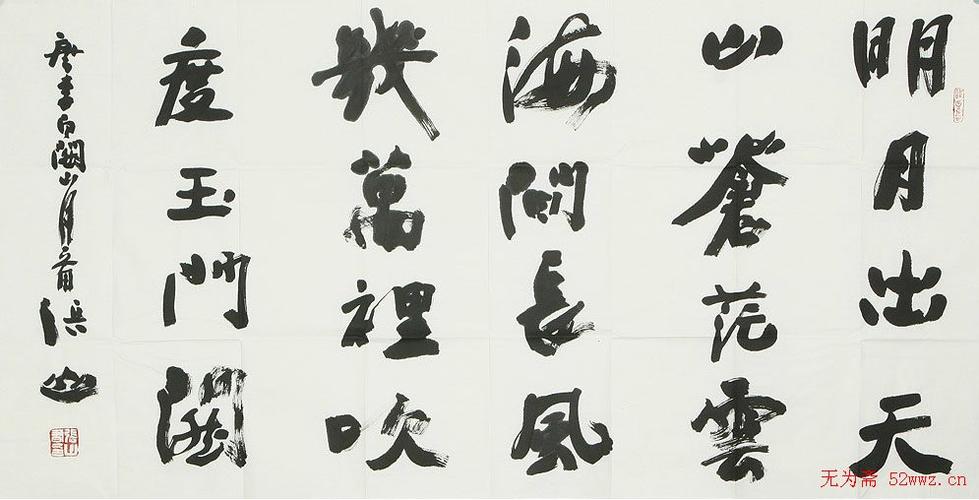 明月出天
山蒼茫雲
海間長風
幾萬裡吹
度玉門關
唐李白關山月
无为斋 52wwz.cn